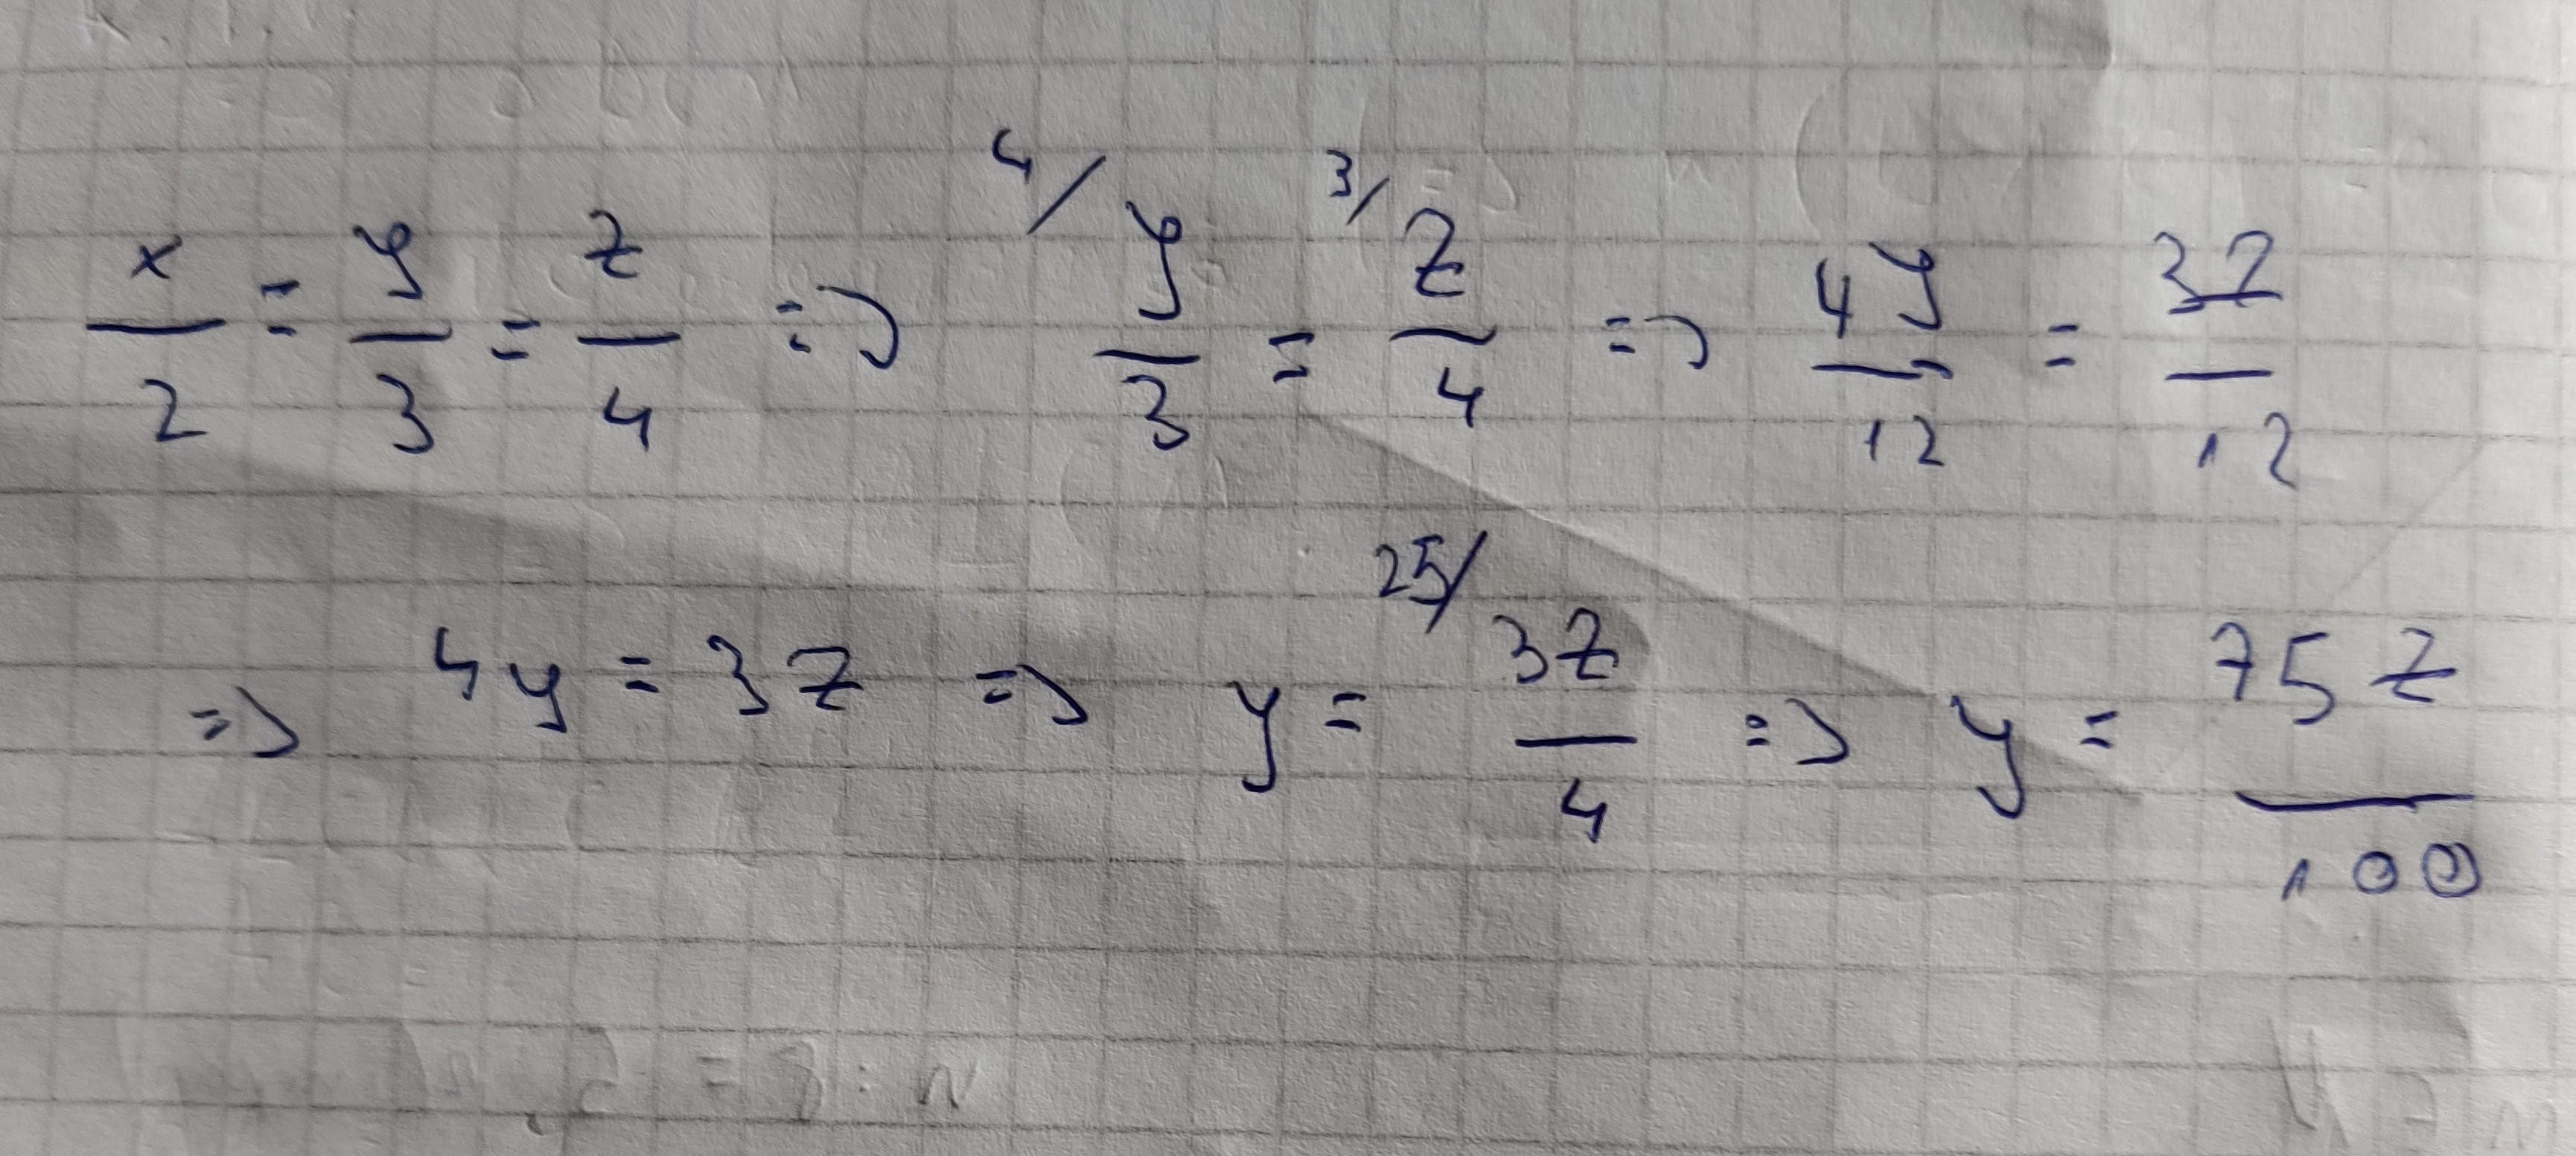 x/2 = y/3 = z/4 => 4/ y/3 = 3/ z/4 => 4y/12 = 3z/12
=> 4y = 3z => y = 25/ 3z/4 => y = 75z/100